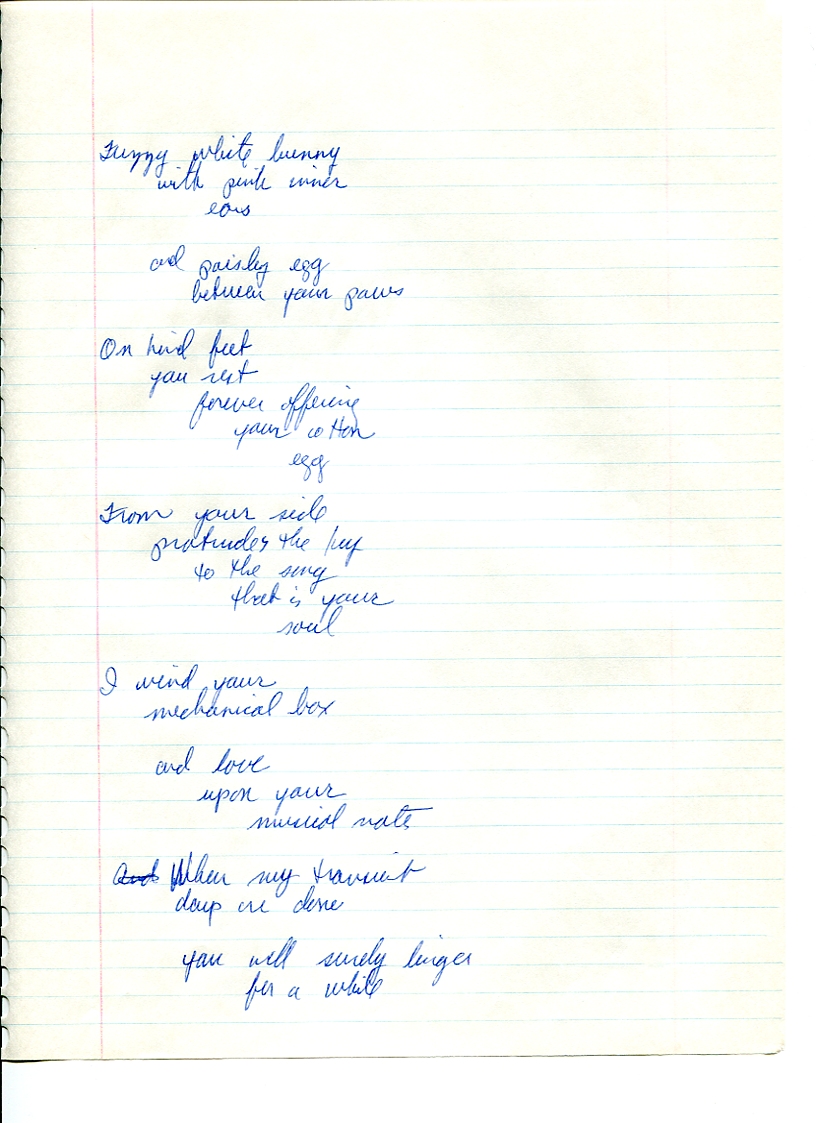 Fuzzy white bunny
with pink inner
ears
and paisley egg
between your paws
On hind feet
you rest
forever offering
your cotton
egg
From your side
protrudes the key
to the song
that is your
soul
I wind your
mechanical box
and love
upon your
musical note
And When my transient
days are done
you will surely linger
for a while